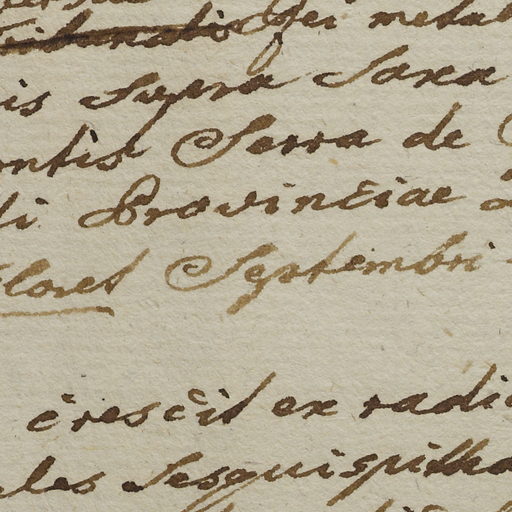 Tribunatio Rei metal
is Supra Saxa
ontis Serra de
li Provinciae
floret Septembri
crescit ex radi
les Sesquispitha